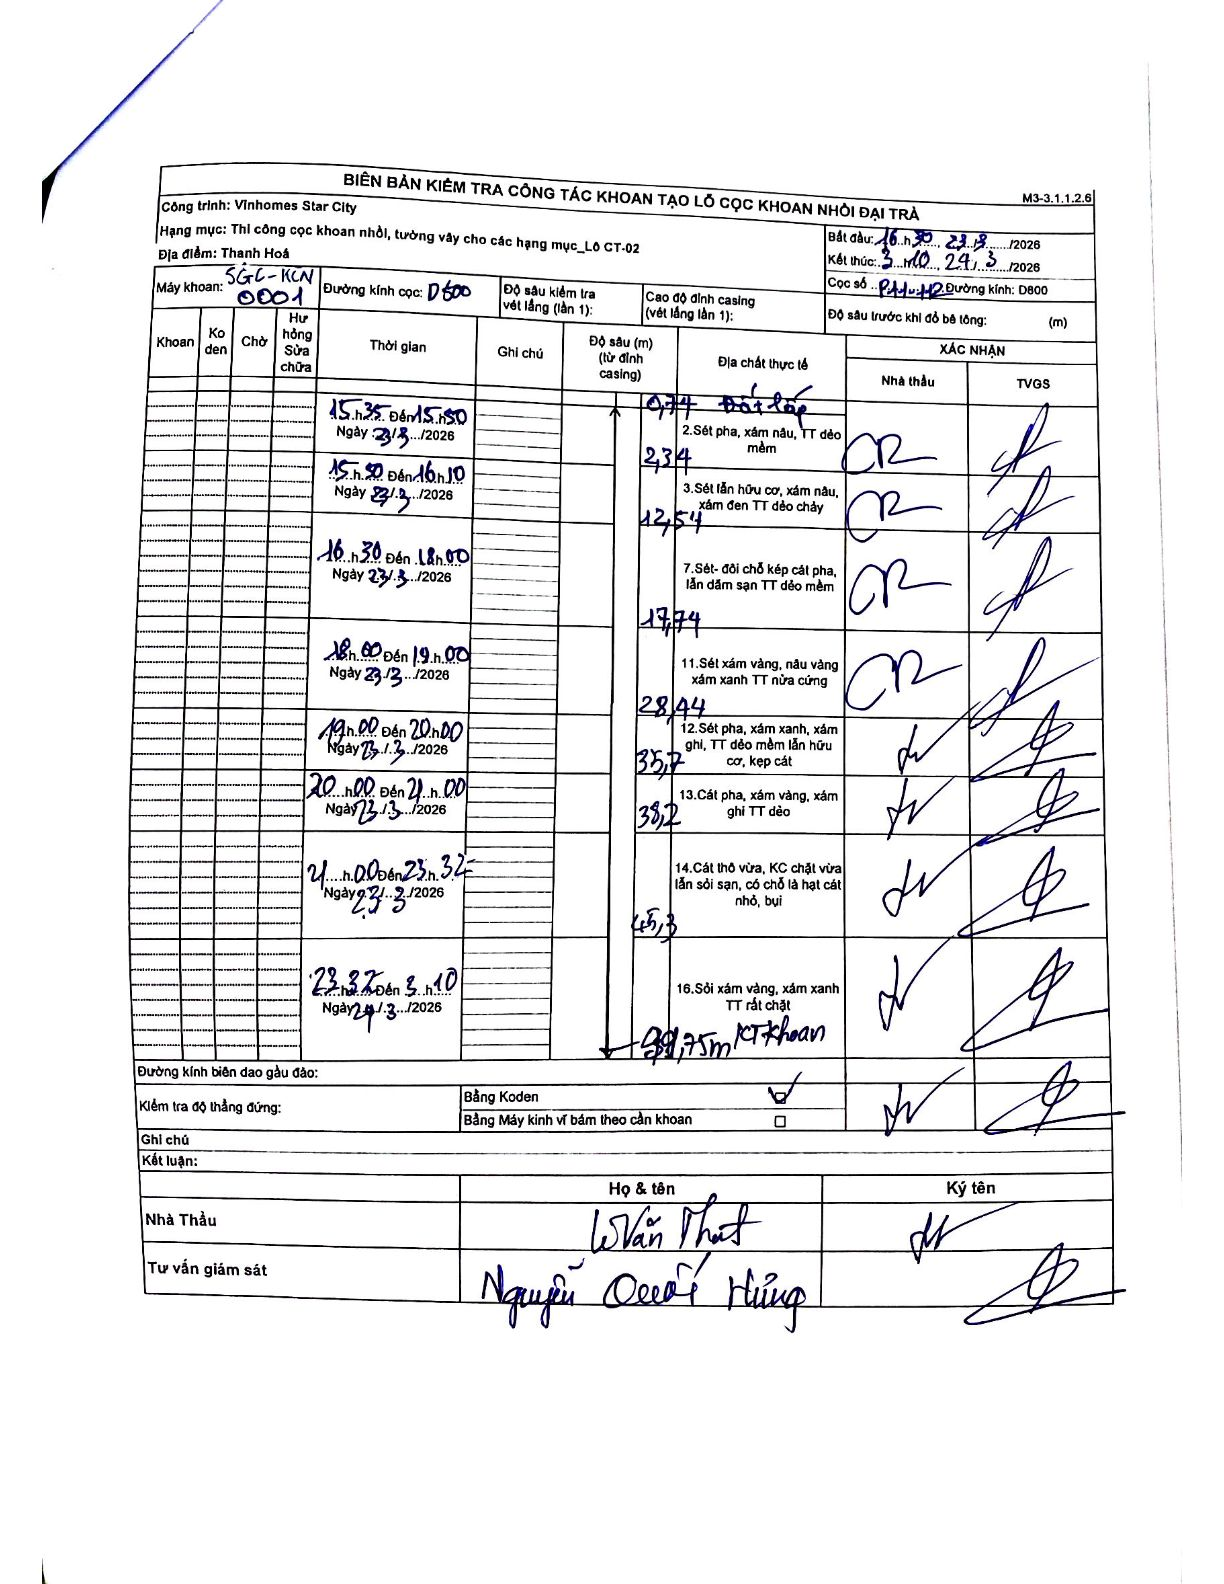 BIÊN BẢN KIỂM TRA CÔNG TÁC KHOAN TẠO LỖ CỌC KHOAN NHỒI ĐẠI TRÀ
M3-3.1.1.2.6
Công trình: Vinhomes Star City
Hạng mục: Thi công cọc khoan nhồi, tường vây cho các hạng mục_Lô CT-02
Địa điểm: Thanh Hoá
Bắt đầu: 16 h 30, 23/3/2026
Kết thúc: 3 h 10, 24/3/2026
Máy khoan: SGC-KCN 0001
Đường kính cọc:
Độ sâu kiểm tra vét lắng (lần 1):
Cao độ đỉnh casing (vét lắng lần 1):
Cọc số
Đường kính: D800
Độ sâu trước khi đổ bê tông: (m)
Khoan
Ko den
Chờ
Hư hỏng Sửa chữa
Thời gian
Ghi chú
Độ sâu (m) (từ đỉnh casing)
Địa chất thực tế
XÁC NHẬN
Nhà thầu
TVGS
0,74 Đất lấp
15 h 35 Đến 15 h 50
Ngày 23/3/2026
2.Sét pha, xám nâu, TT dẻo mềm
2,34
15 h 50 Đến 16 h 10
Ngày 23/3/2026
3.Sét lẫn hữu cơ, xám nâu, xám đen TT dẻo chảy
12,54
16 h 30 Đến 18 h 00
Ngày 23/3/2026
7.Sét- đôi chỗ kép cát pha, lẫn dăm sạn TT dẻo mềm
17,74
18 h 00 Đến 19 h 00
Ngày 23/3/2026
11.Sét xám vàng, nâu vàng xám xanh TT nửa cứng
28,44
19 h 00 Đến 20 h 00
Ngày 23/3/2026
12.Sét pha, xám xanh, xám ghi, TT dẻo mềm lẫn hữu cơ, kẹp cát
35,7
20 h 00 Đến 21 h 00
Ngày 23/3/2026
13.Cát pha, xám vàng, xám ghi TT dẻo
38,2
21 h 00 Đến 23 h 32
Ngày 23/3
/2026
14.Cát thô vừa, KC chặt vừa lẫn sỏi sạn, có chỗ là hạt cát nhỏ, bụi
45,3
23 h 32 Đến 3 h 10
Ngày 24/3/2026
16.Sỏi xám vàng, xám xanh TT rất chặt
KT khoan
Đường kính biên dao gầu đào:
Kiểm tra độ thẳng đứng:
Bằng Koden
Bằng Máy kinh vĩ bám theo cần khoan
Ghi chú
Kết luận:
Họ & tên
Ký tên
Nhà Thầu
Văn
Tư vấn giám sát
Nguyễn Quốc Hưng